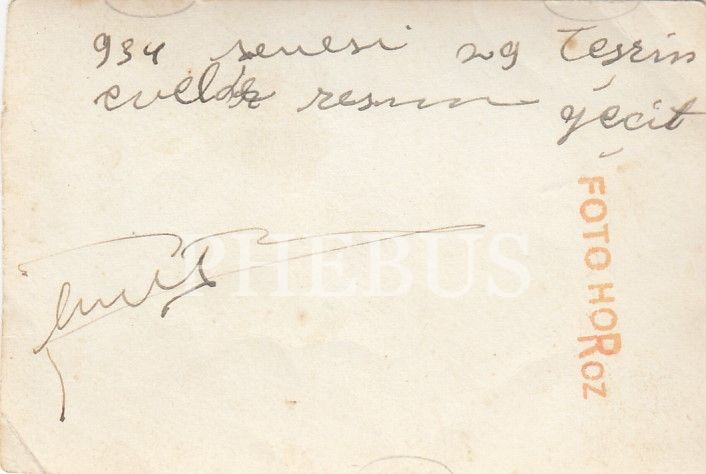 934 senesi 29 Teşrin
evelde resmi geçit
FOTO HOROZ
PHEBUS